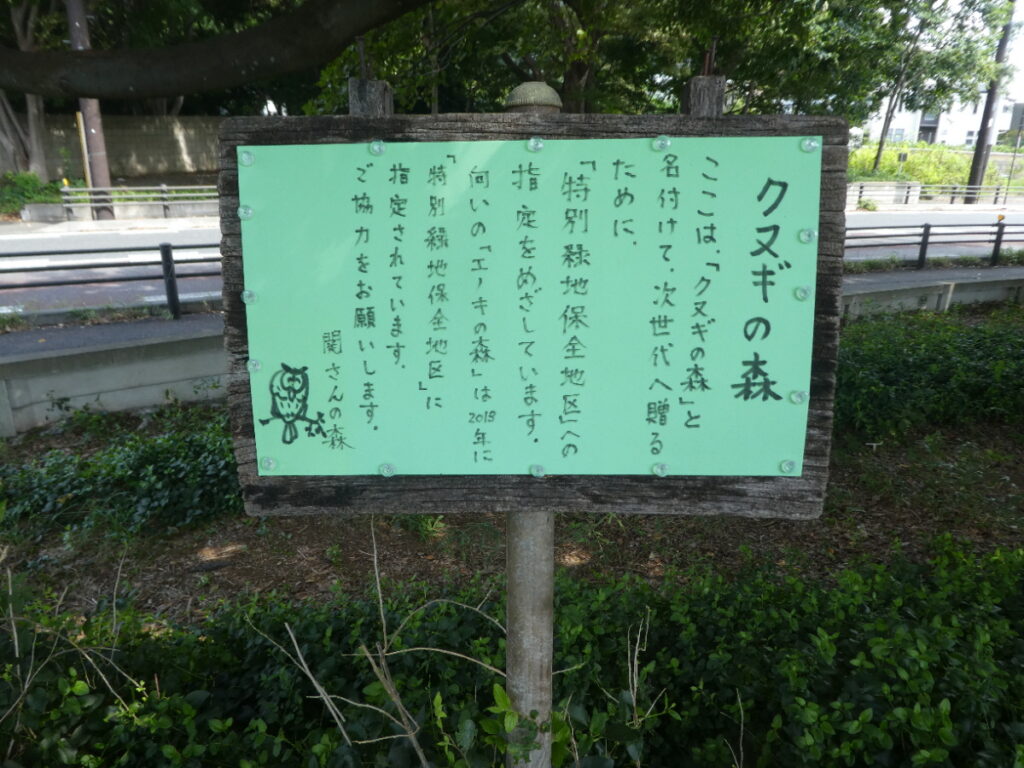 クヌギの森
ここは、「クヌギの森」と
名付けて、次世代へ贈る
ために、
「特別緑地保全地区」への
指定をめざしています。
向いの「エノキの森」は2013年に
「特別緑地保全地区」に
指定されています。
ご協力をお願いします。
関さんの森